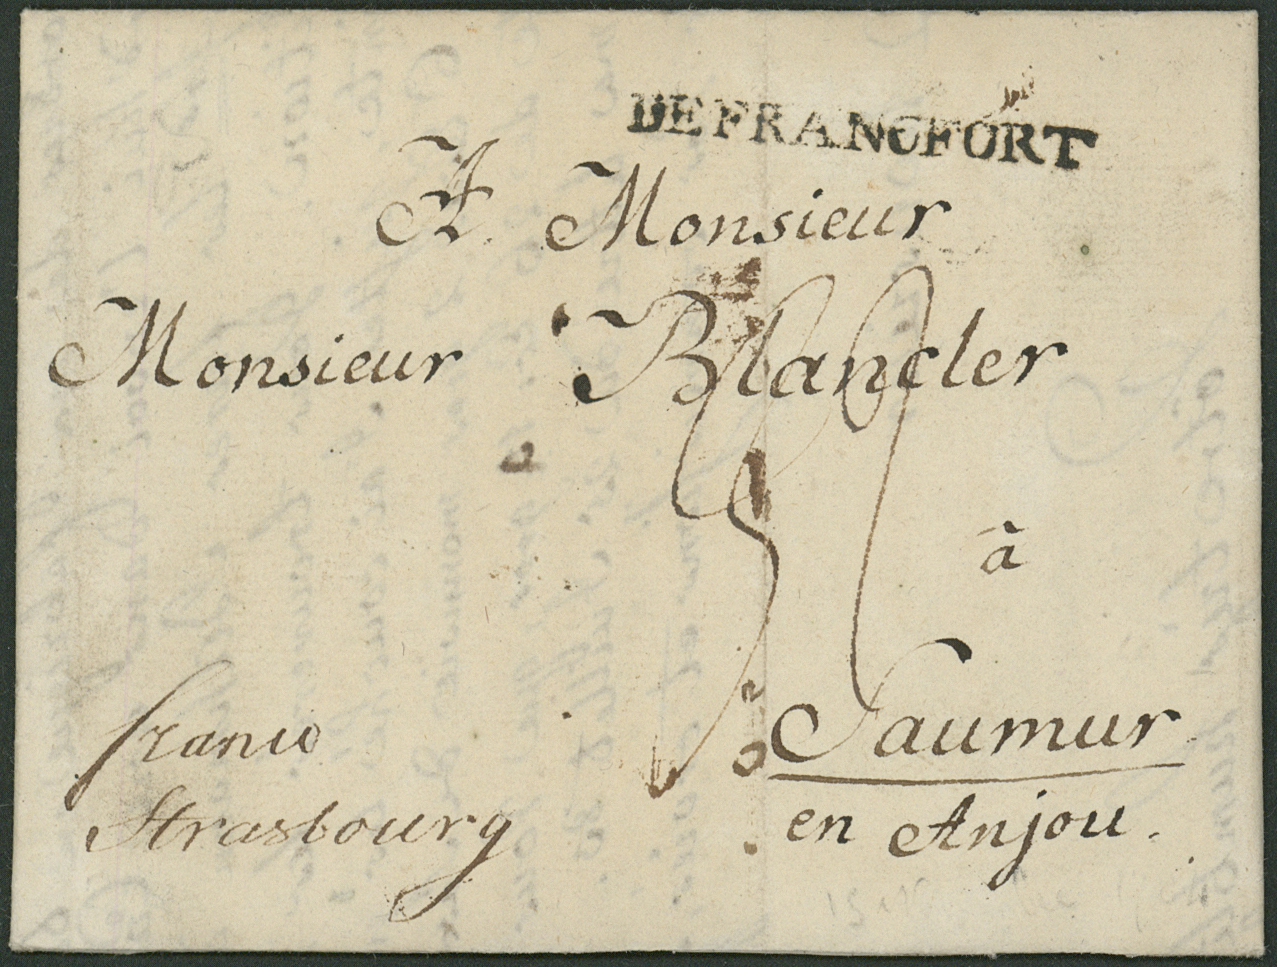 DE FRANCFORT
A. Monsieur
Monsieur Blancler
à
Saumur
en Anjou.
franco
Strasbourg